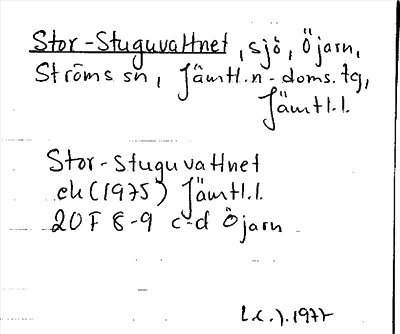 Stor-Stuguvattnet, sjö, Öjarn,
Ströms sn, Jämtl.n-doms.tg,
Jämtl.l.
Stor-Stuguvattnet
ek (1975) Jämtl.l.
20F 8-9 c-d Öjarn
1977